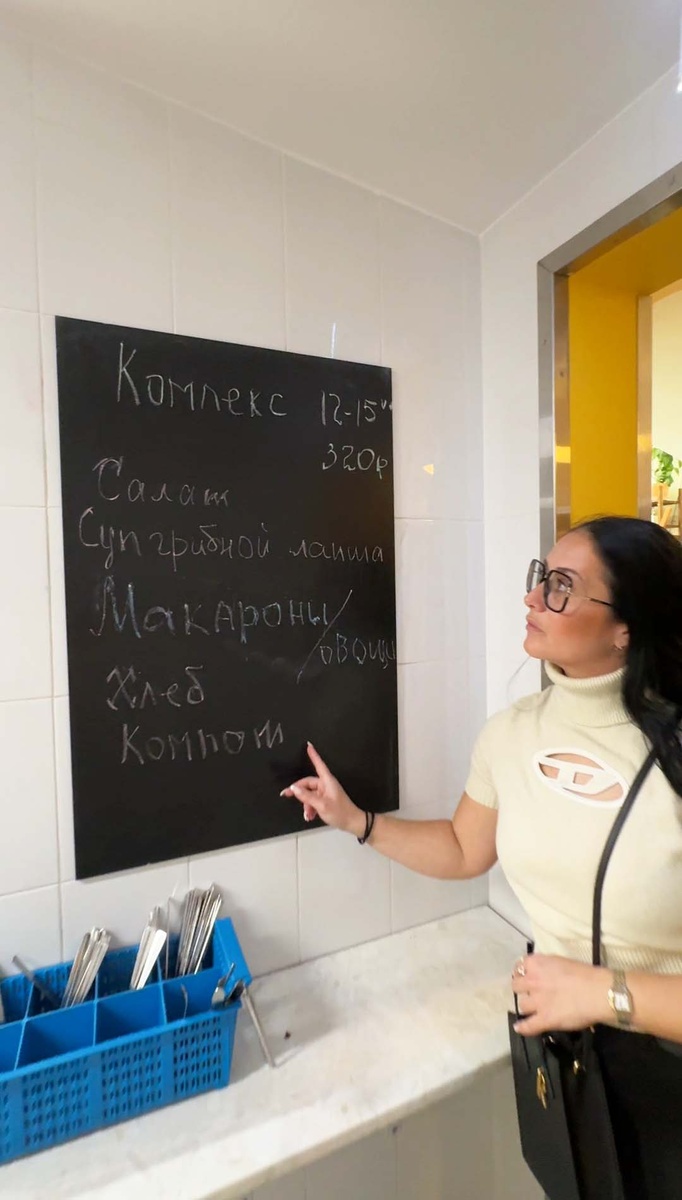 Комплекс 12-15°°
320р
Салат
Суп грибной лапша
Макароны/
овощи
Хлеб
Компот